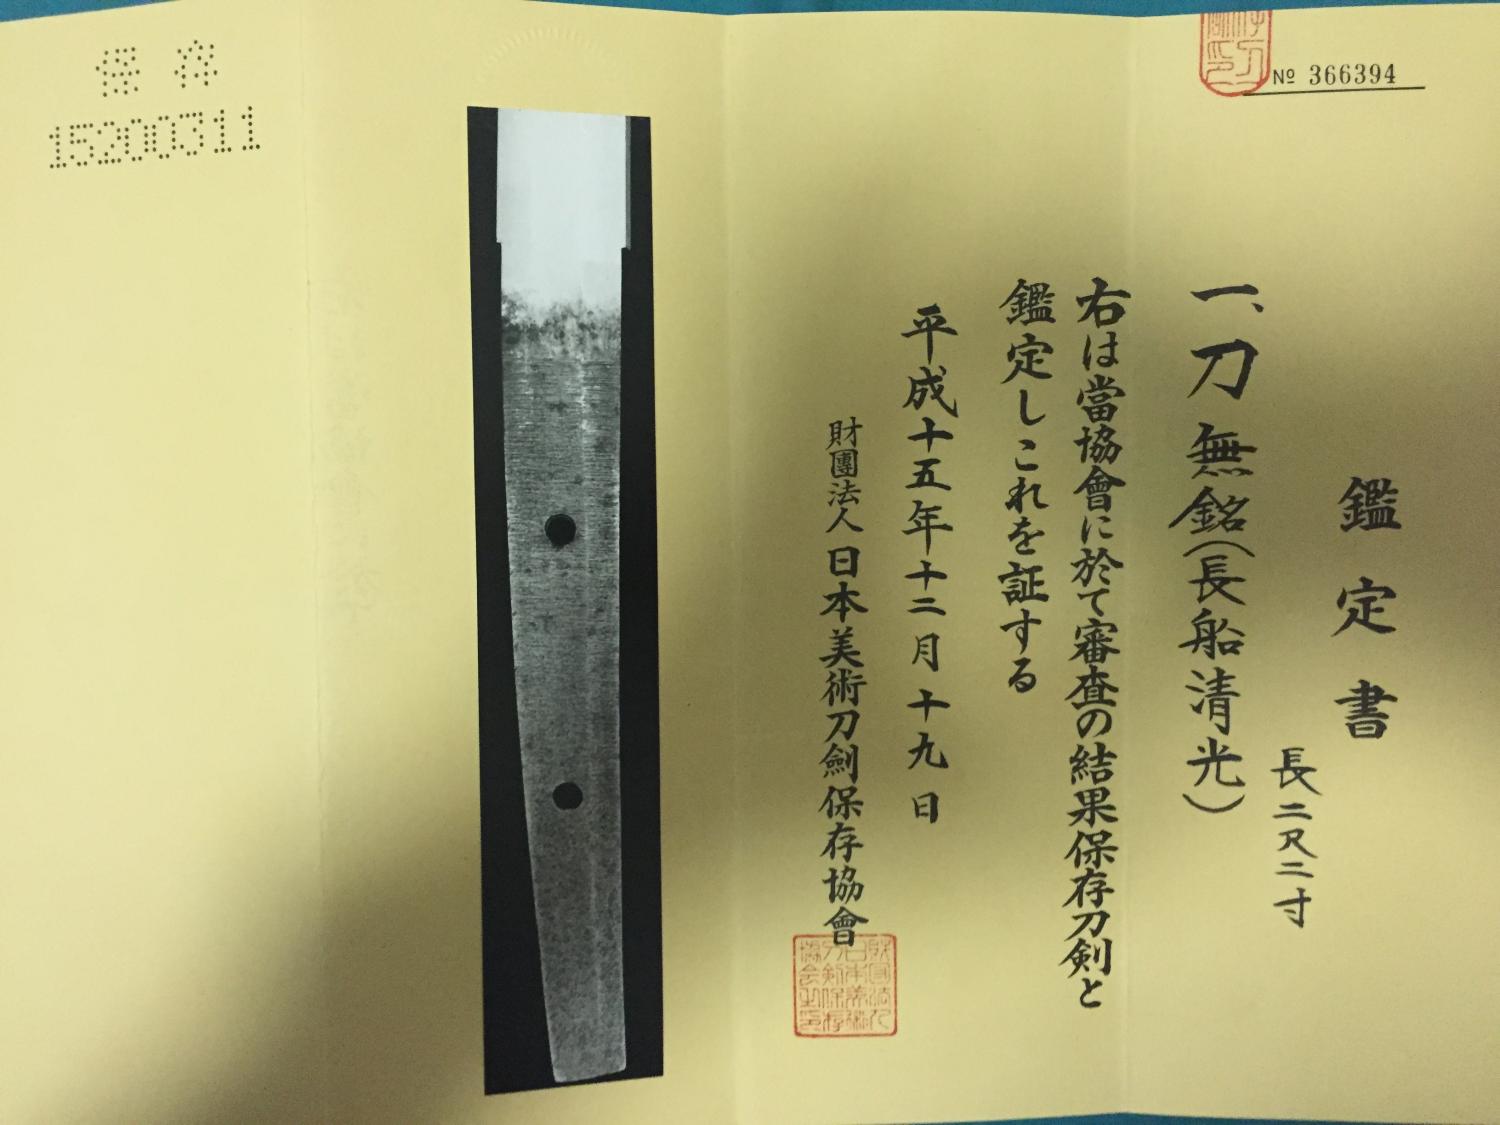 № 366394
鑑定書
長二尺二寸
一、刀 無銘(長船清光)
右は當協會に於て審査の結果保存刀剣と
鑑定しこれを証する
平成十五年十二月十九日
財團法人日本美術刀劍保存協會
財団法人
日本美術
刀剣保存
協会之印
保存
15200311